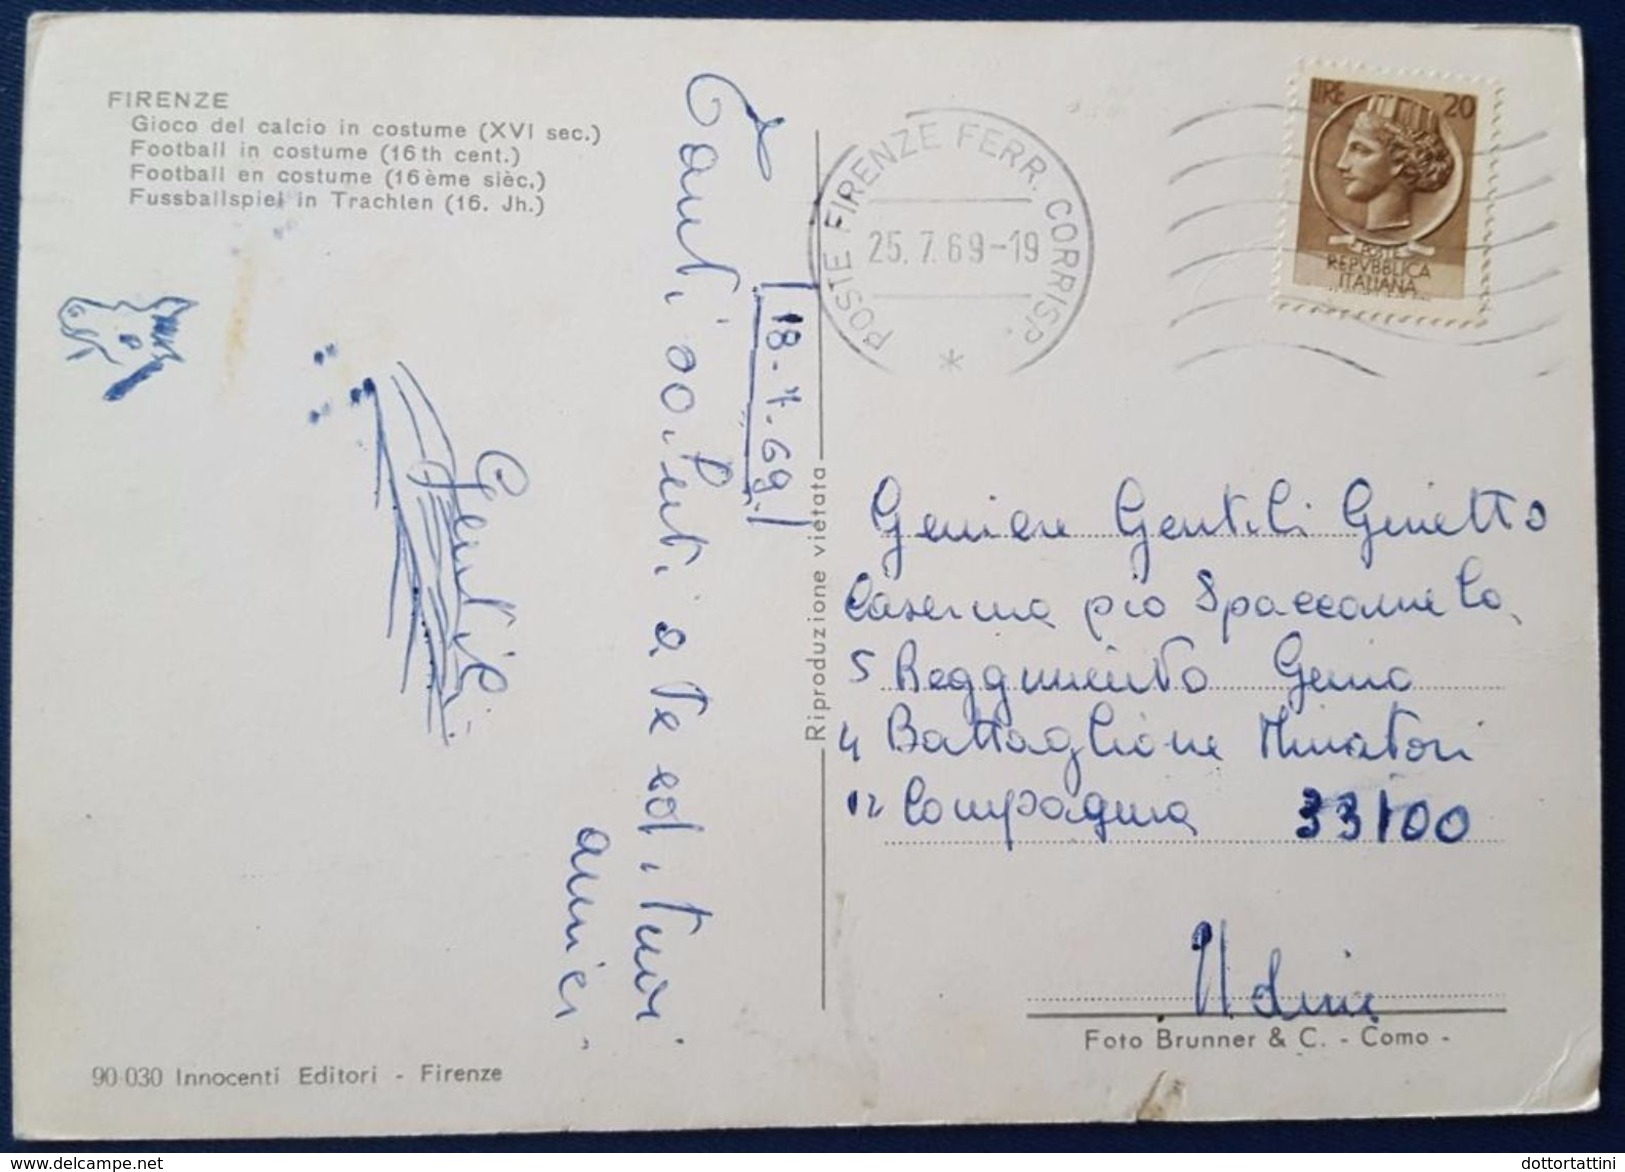 FIRENZE
Gioco del calcio in costume (XVI sec.)
Football in costume (16th cent.)
Football en costume (16ème sièc.)
Fussballspiel in Trachlen (16. Jh.)
18-7-69
Tanti saluti a te ed i tuoi
amici
Gentili
Riproduzione vietata
POSTE FIRENZE FERR. CORRISP.
25.7.69-19
LIRE 20
POSTE
REPVBBLICA
ITALIANA
Geniere Gentili Ginetto
Caserma pio Spaccamela
5 Reggimento Genio
4 Battaglione Minatori
12 Compagnia 33100
Udine
Foto Brunner & C. - Como -
90-030 Innocenti Editori - Firenze
dottortattini